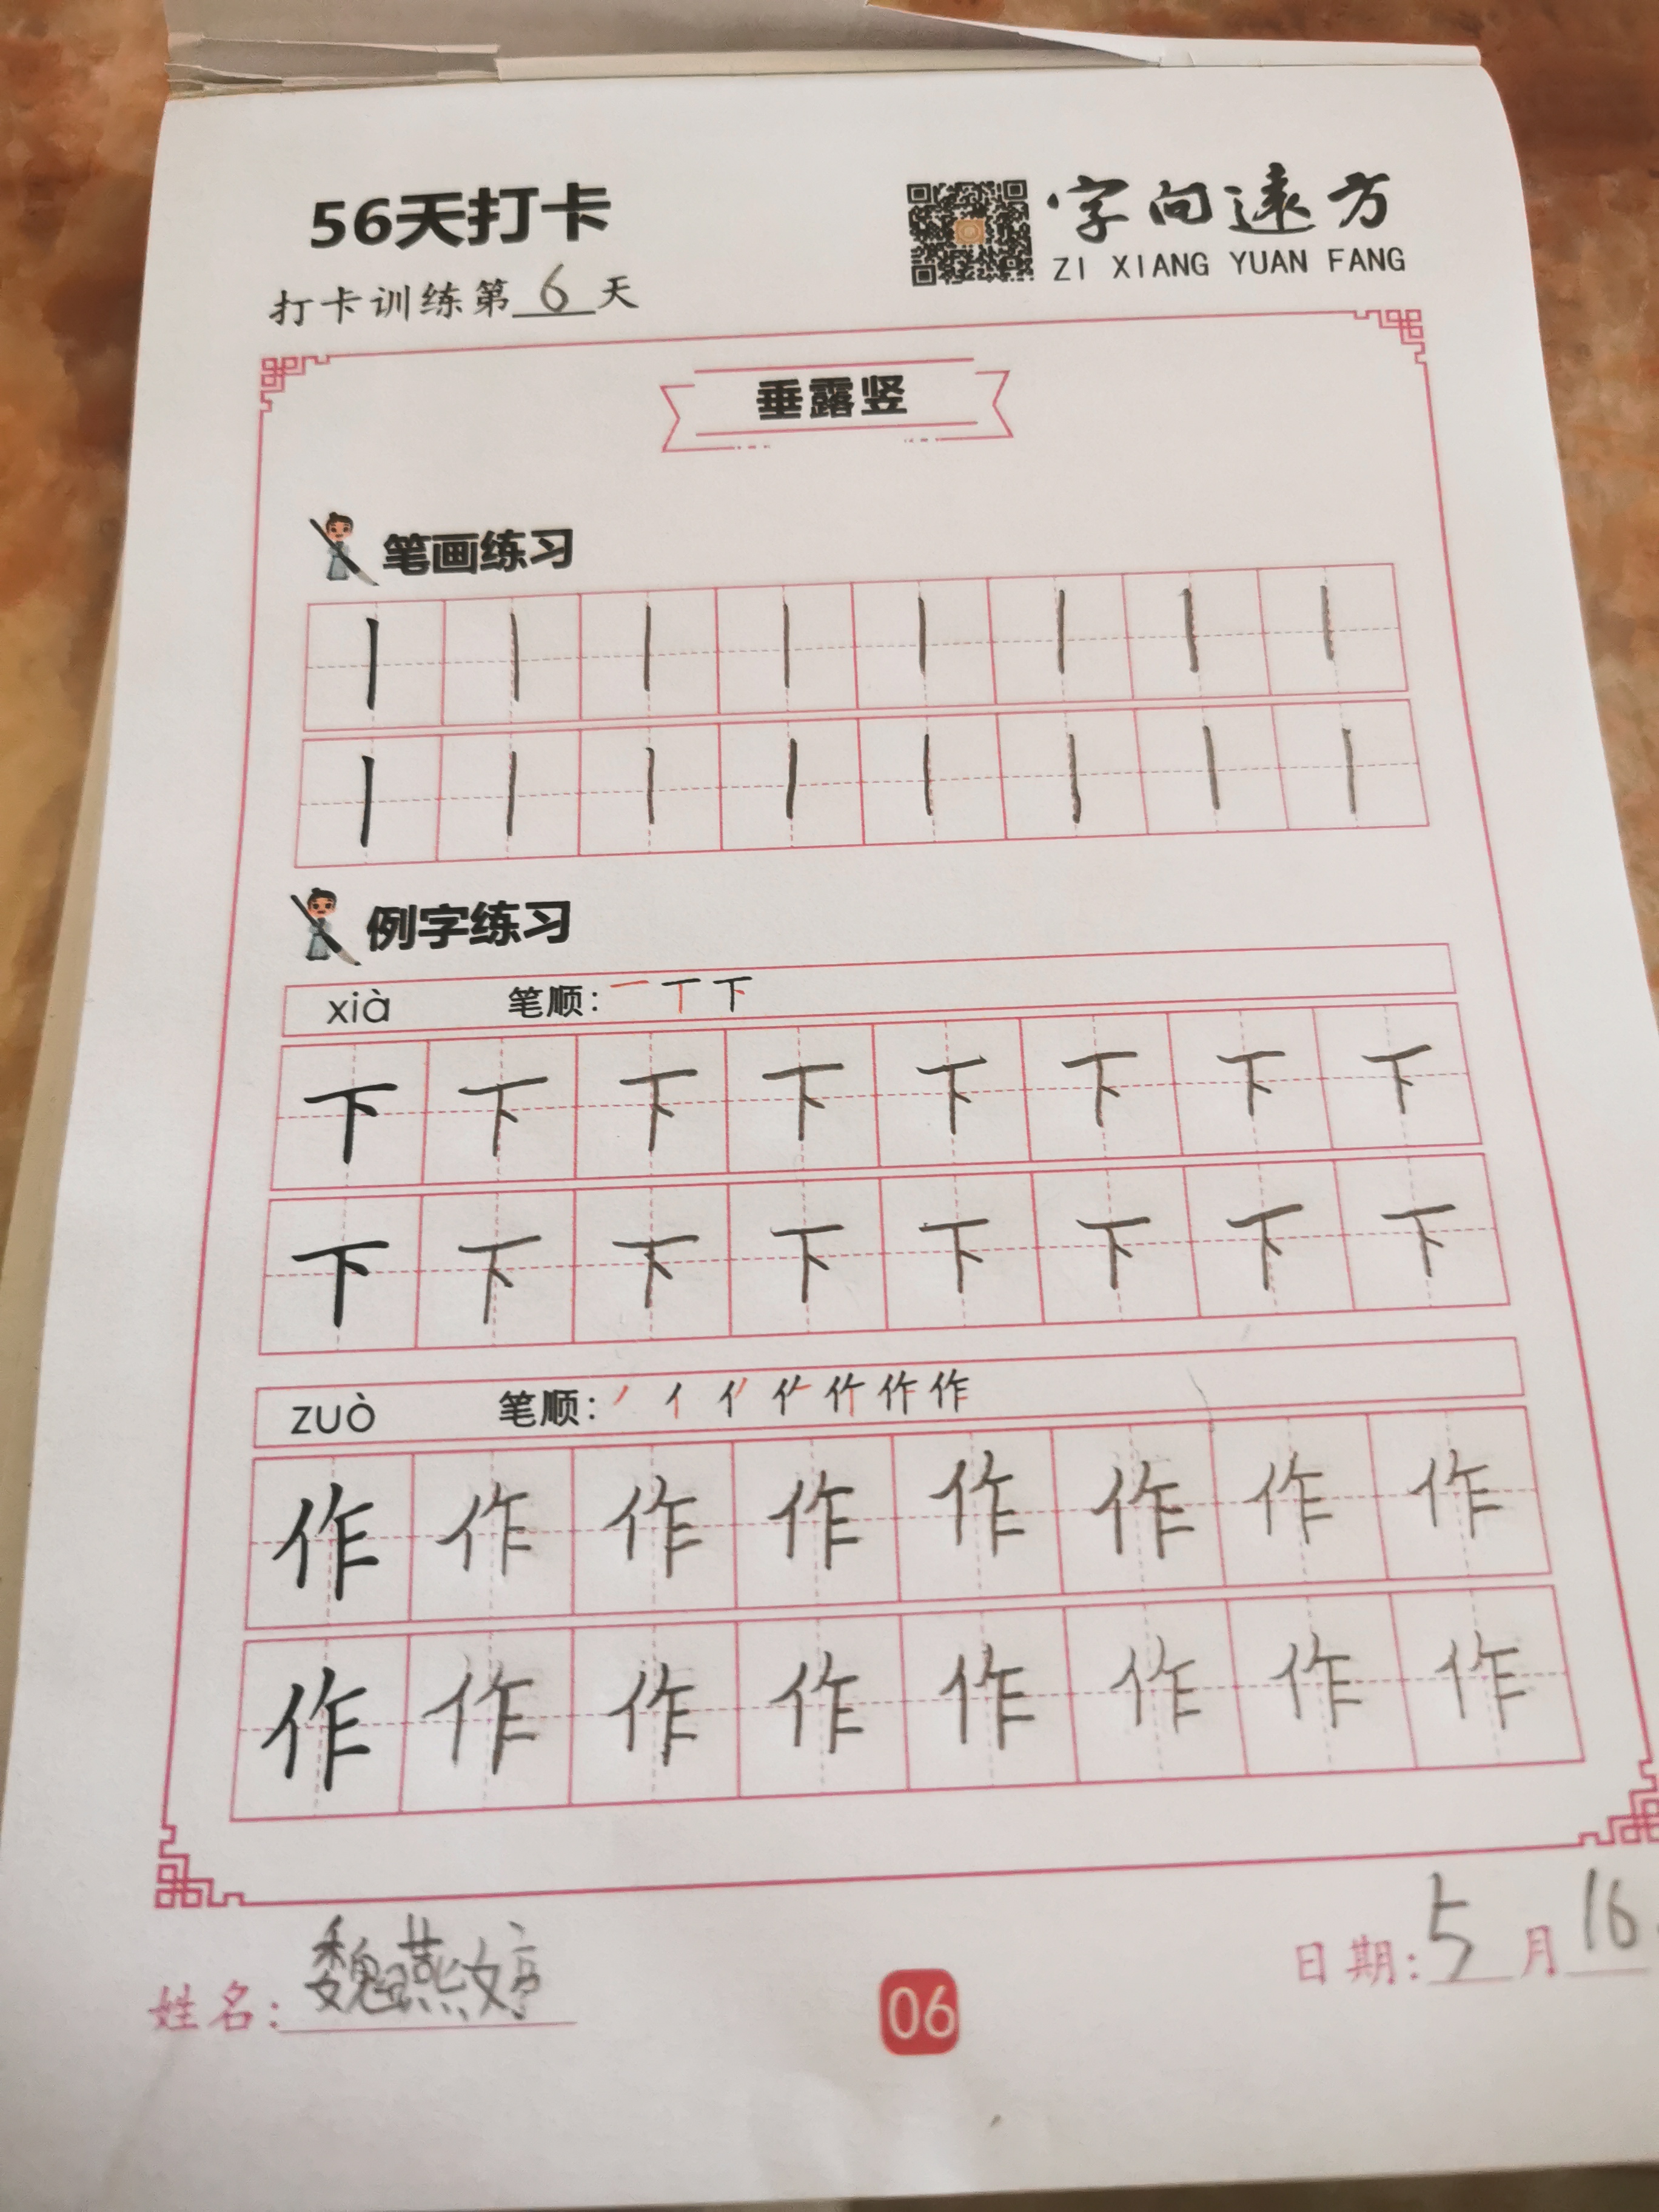 56天打卡
字向遠方
ZI XIANG YUAN FANG
打卡训练第6天
垂露竖
笔画练习
丨 丨 丨 丨 丨 丨 丨 丨
丨 丨 丨 丨 丨 丨 丨 丨
例字练习
xià 笔顺: 一 丅 下
下 下 下 下 下 下 下 下
下 下 下 下 下 下 下 下
zuò 笔顺: 作
作 作 作 作 作 作 作 作
作 作 作 作 作 作 作 作
姓名: 魏燕婷
06
日期: 5月16